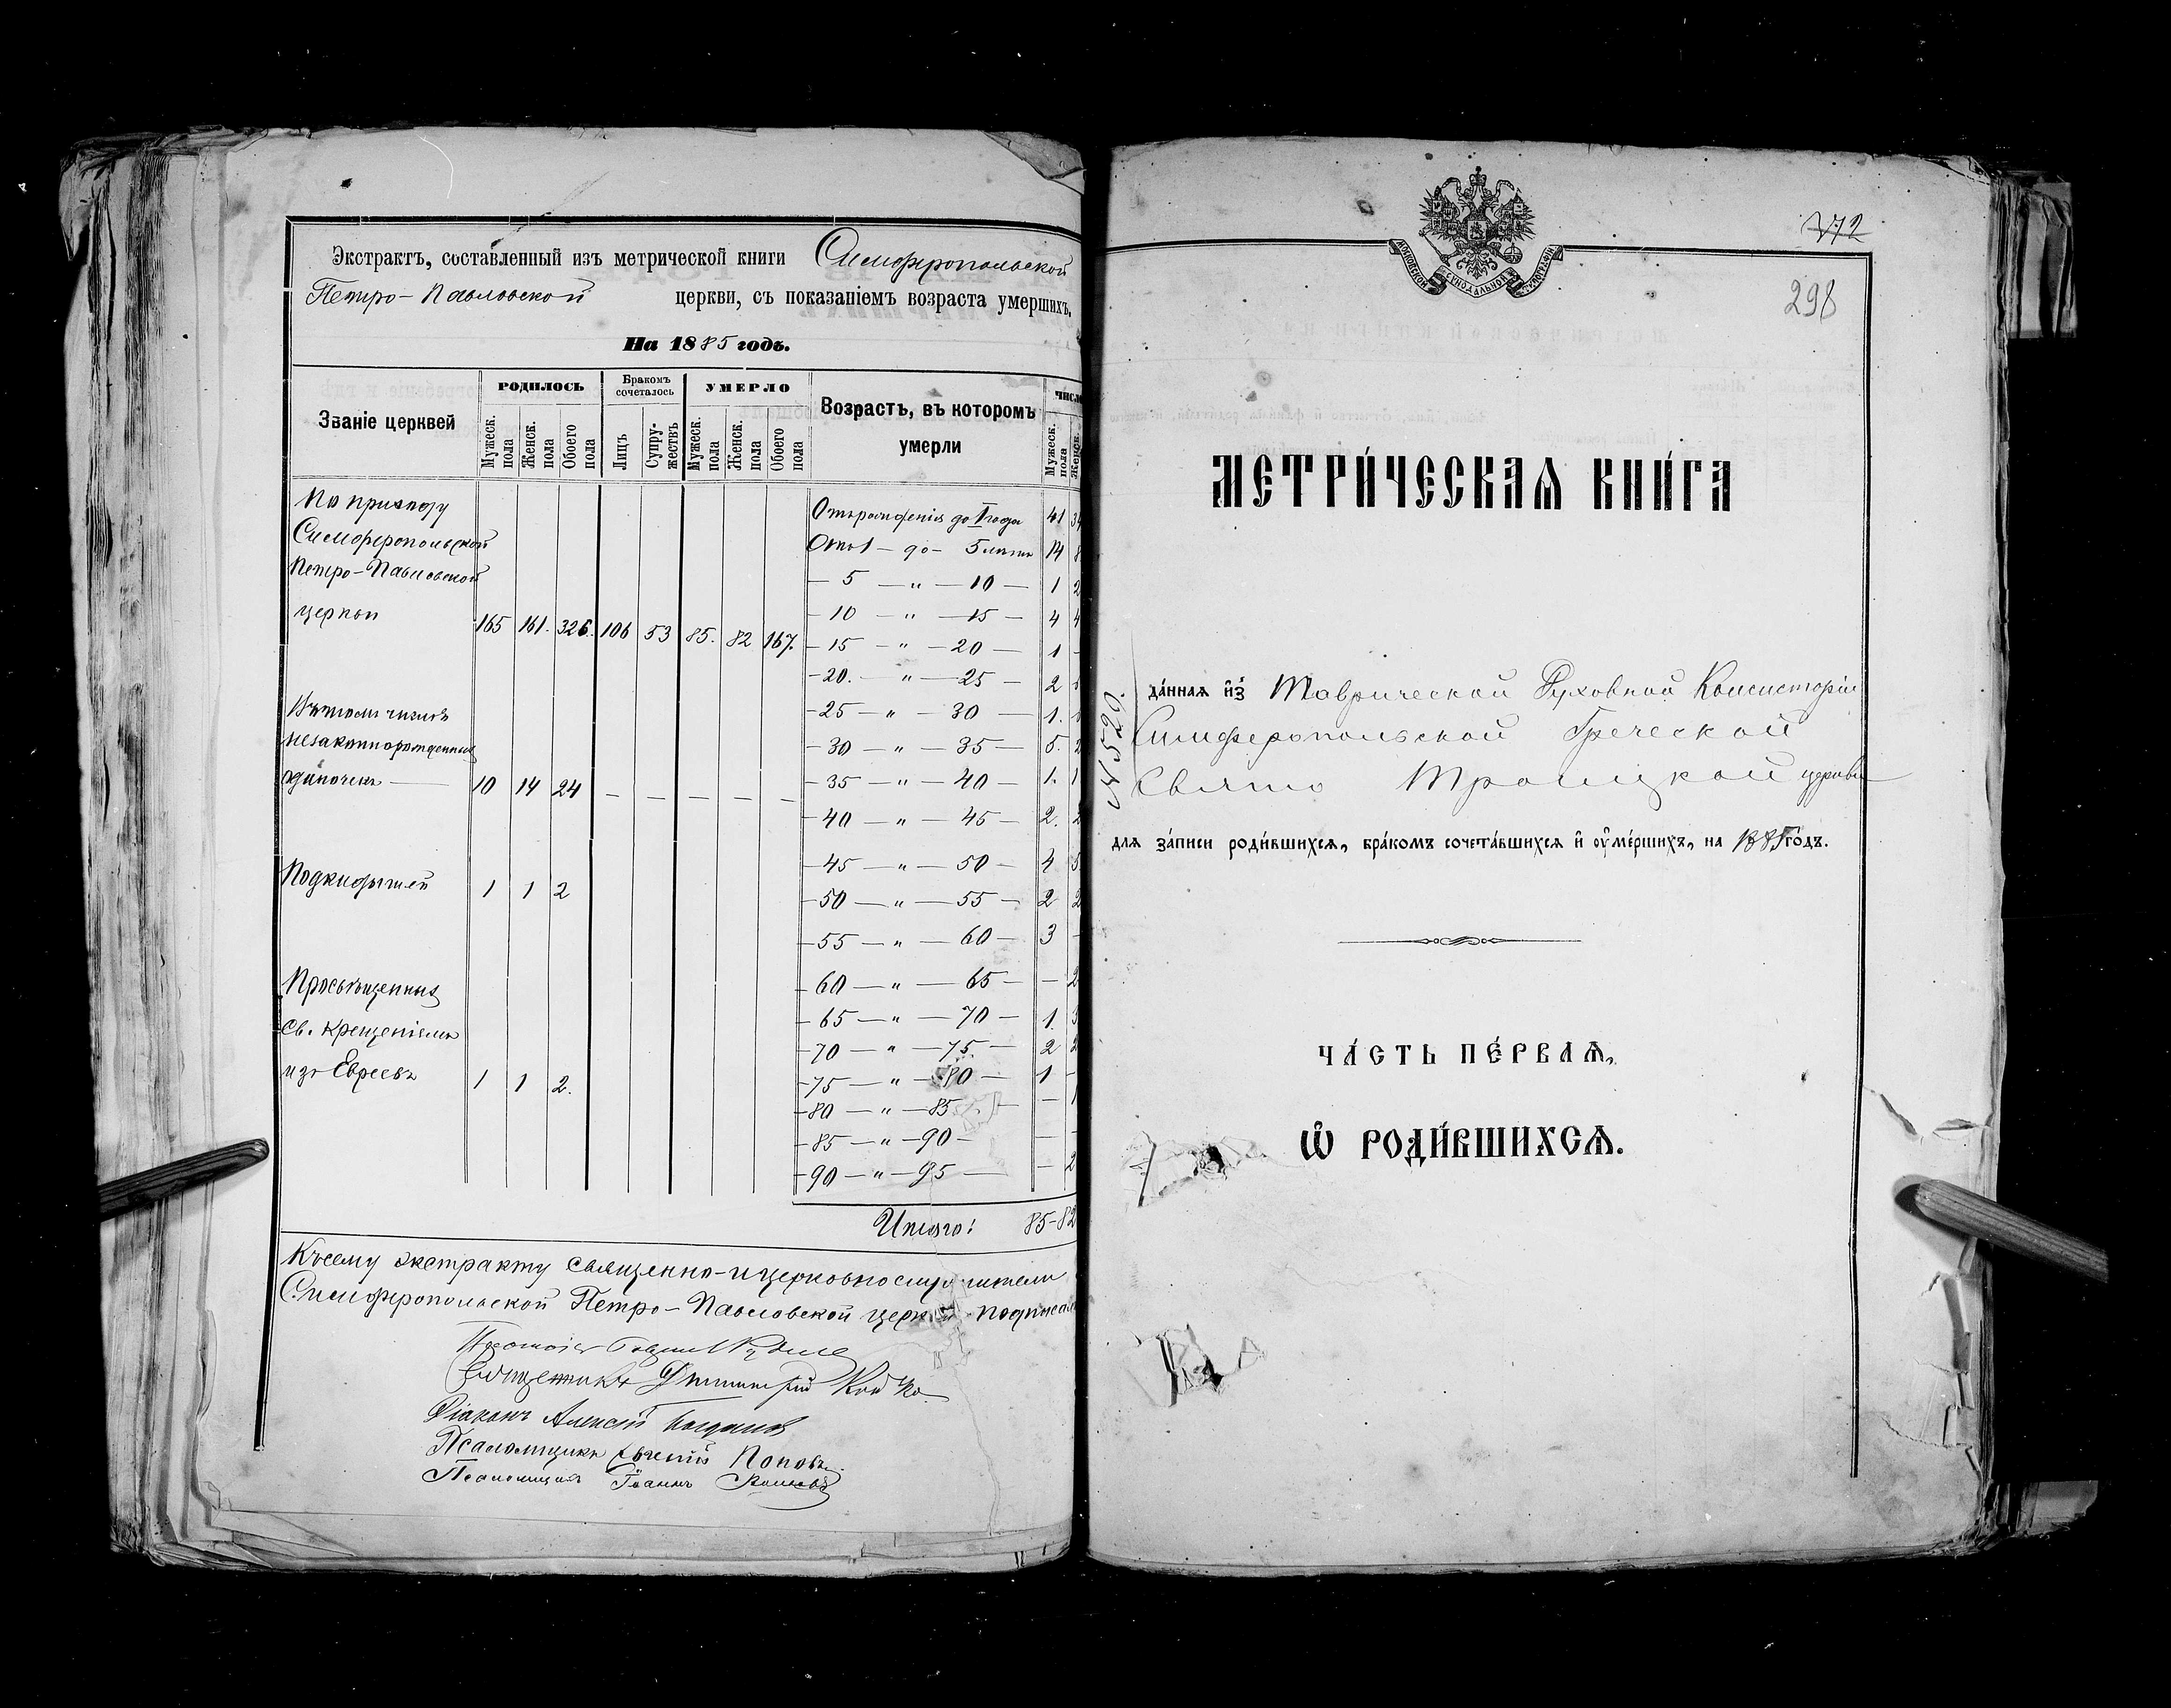 Экстрактъ, составленный изъ метрической книги Симферопольской
Петро-Павловской церкви, съ показаніемъ возраста умершихъ.
На 1885 годъ.
Званіе церквей
РОДИЛОСЬ
Бракомъ сочеталось
УМЕРЛО
Возрастъ, въ которомъ умерли
Мужеск. пола
Женск. пола
Обоего пола
Лицъ
Супружествъ
Мужеск. пола
Женск. пола
Обоего пола
Мужеск. пола
Женск.
По приходу
Симферопольской
Петро-Павловской
церкви 165 161. 326. 106 53 85. 82 167.
Въ томъ числѣ
незаконнорожденныхъ
одиночекъ — 10 14 24 — — — — —
Подкидышей 1 1 2
Просвѣщенныхъ
Св. Крещеніемъ
изъ Евреевъ 1 1 2.
Отъ рожденія до 1 года 41 34
Отъ 1 — до — 5 лѣтъ 14 8
— 5 — „ — 10 — 1 2
— 10 — „ — 15 — 4 4
— 15 — „ — 20 — 1 -
— 20. — „ — 25 — 2
— 25 — „ — 30 — 1.
— 30 — „ — 35 — 5. 2
— 35 — „ — 40 — 1. 1
— 40 — „ — 45 — 2. 2
— 45 — „ — 50 — 4 5
— 50 — „ — 55 — 2 2
— 55 — „ — 60 — 3 -
— 60 — „ — 65 — — 2
— 65 — „ — 70 — 1. 3
— 70 — „ — 75. — 2 2
— 75 — „ — 80 — 1 -
— 80 — „ — 85 — — 1
— 85 — „ — 90 — — -
— 90 — „ — 95 — — 2
Итого: 85-82
Къ сему экстракту священно-и церковнослужители
Симферопольской Петро-Павловской церкви подписали
Священникъ Димитрій Койко
Діаконъ Алексій
Псаломщикъ Евгеній Поповъ.
Псаломщикъ Іоаннъ
МОСКОВСКОЙ СУНОДАЛЬНОЙ ТИПОГРАФІИ
172
298
МЕТРИ́ЧЕСКАѦ КНИ́ГА
№ 520.
да́нная и҆з̾ Таврической Духовной Консисторіи
Симферопольской Греческой
Свято Троицкой церкви
для за́писи роди́вшихсѧ, бра́комъ сочета́вшихсѧ и҆ ᲂу҆ме́ршихъ, на 1885 го́дъ.
ЧА́СТЬ ПЕ́РВАѦ,
Ѽ РОДИ́ВШИХСѦ.